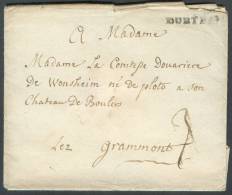 A Madame
Madame La Comtesse Douariere
de Wonsheim né de ploto a son
Chateau de Boulers
Lez Grammont